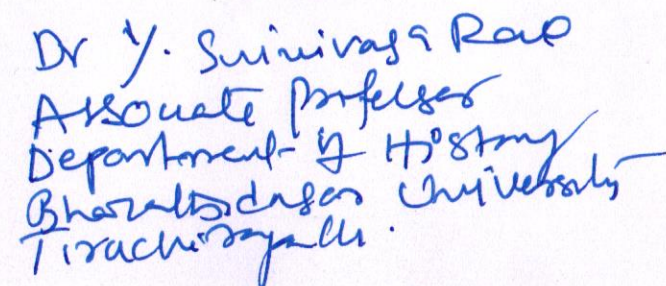 Dr Y. Srinivasa Rao
Associate Professor
Department of History
Bharathidasan University
Tiruchirappalli.